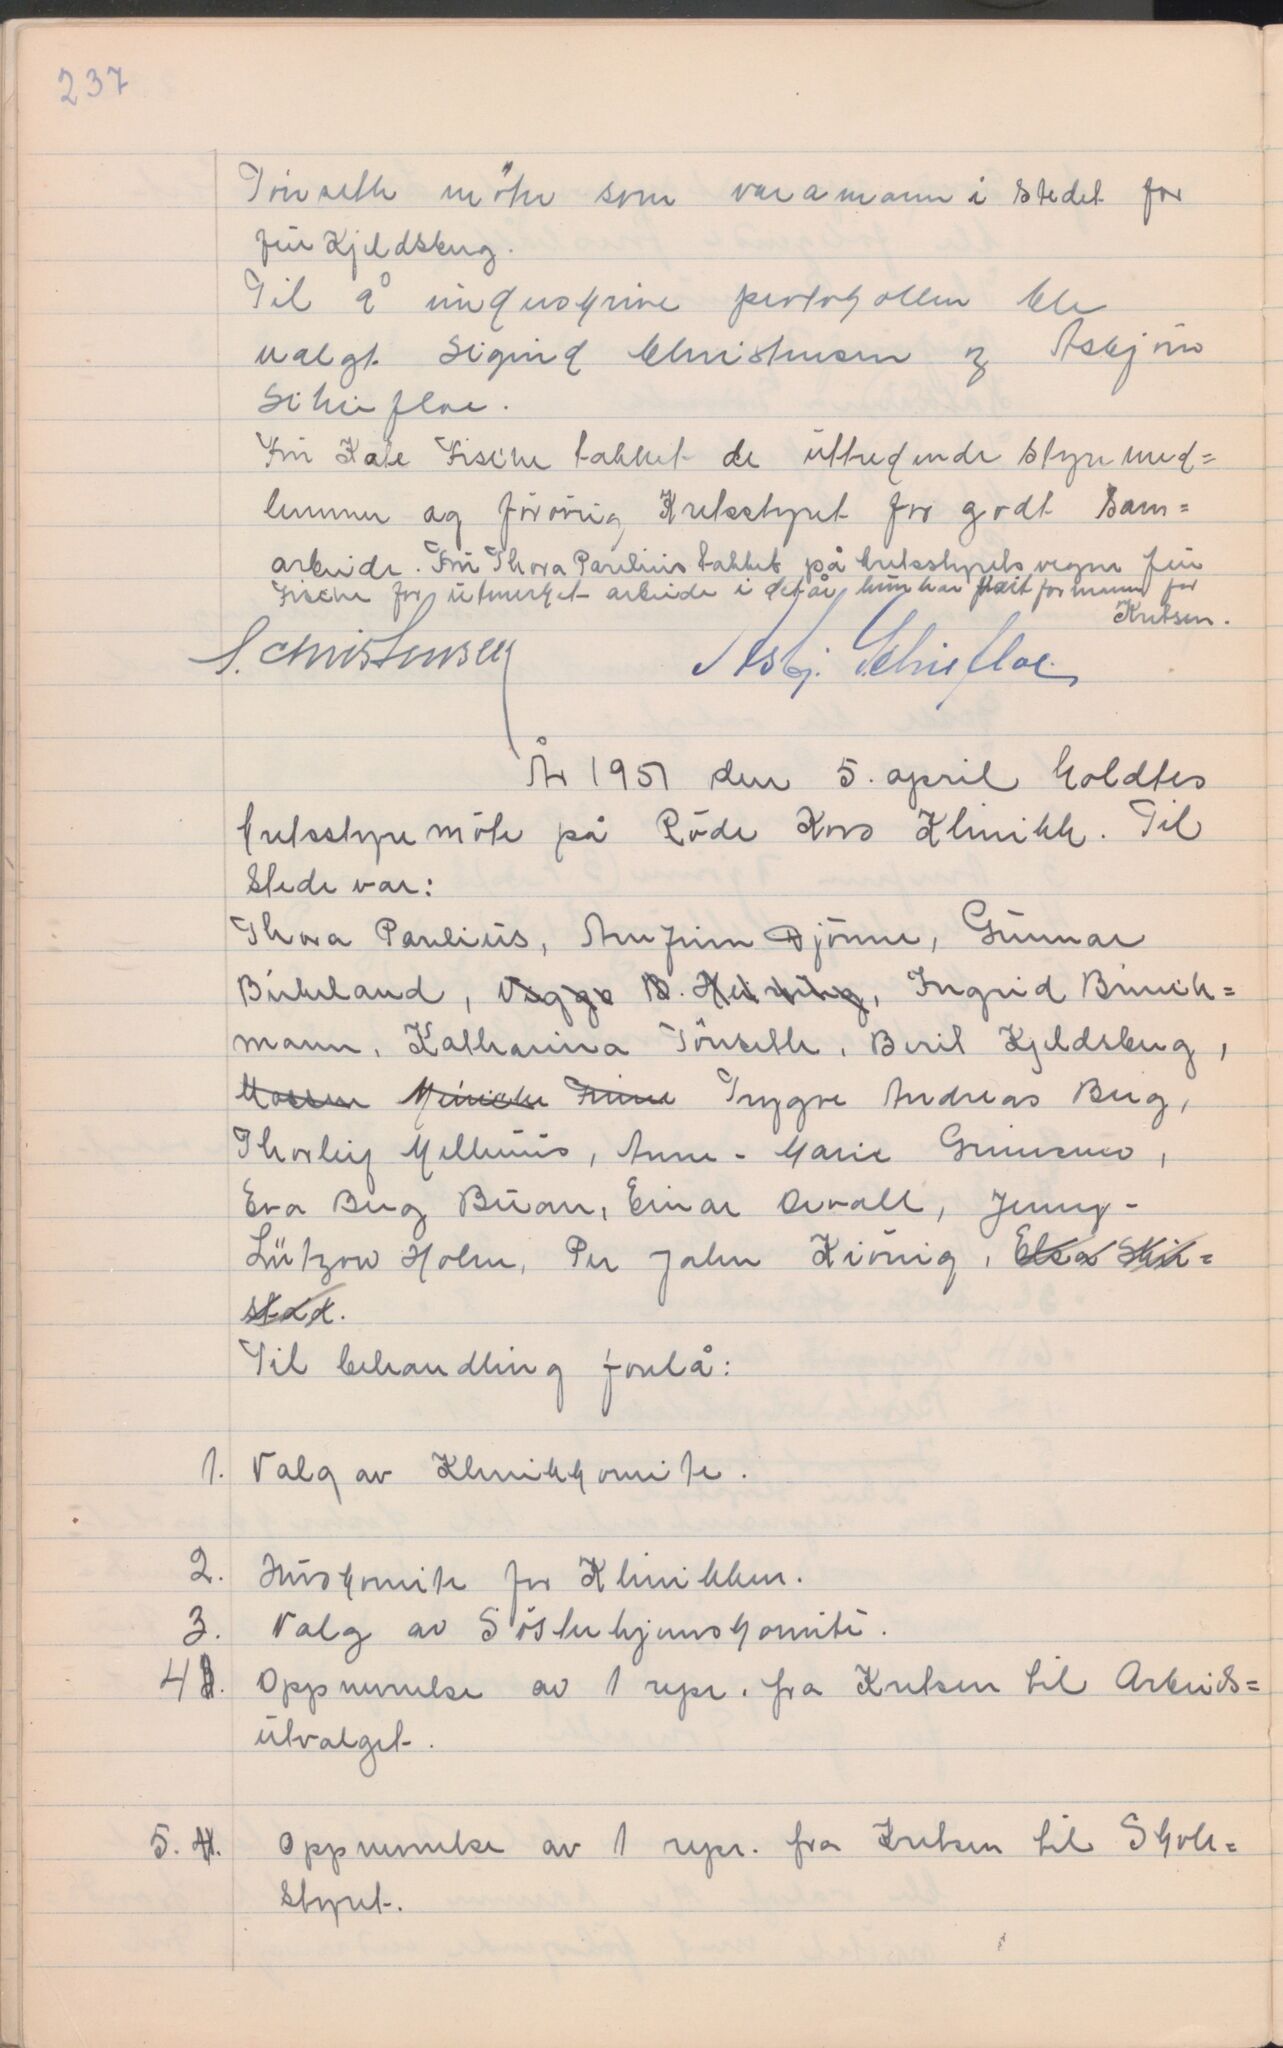 237
Tönseth möte som varamann i stedet for
frü Kjeldsberg.
Til å underskrive protokollen ble
valgt Sigrid Christensen og Asbjörn
Schiefloe.
Frü Kate Fische takket de üttredende styremed=
lemmer og forövrig Kretsstyret for godt sam=
arbeide. Frü Thora Paulius takket på kretsstyrets vegne frü
Fische for ütmerket arbeide i det år hün har vært formann for
Kretsen.
S. Christensen Asbj. Schiefloe.
År 1951 den 5. april holdtes
kretsstyremöte på Röde Kors Klinikk. Til
stede var:
Thora Paulius, Arnfinn Djönne, Günnar
Birkeland, Viggo B. Heining, Ingrid Brinch=
mann, Katharina Tönseth, Beril Kjeldsberg,
Mossen Münche Finne Trygve Andreas Berg,
Thorleif Mellüüs, Anne-Marie Grimsmo,
Eva Berg Büan, Einar Orvall, Jenny
Lützow Holm, Per John Kiönig, Elsa Skik=
stad.
Til behandling forelå:
1. Valg av Klinikkomite.
2. Hüskomite for Klinikken.
3. Valg av Sösterhjemskomite.
4. Oppnevnelse av 1 repr. fra Kretsen til Arbeids=
ütvalget.
5. 4. Oppnevnelse av 1 repr. fra Kretsen til Skole=
styret.